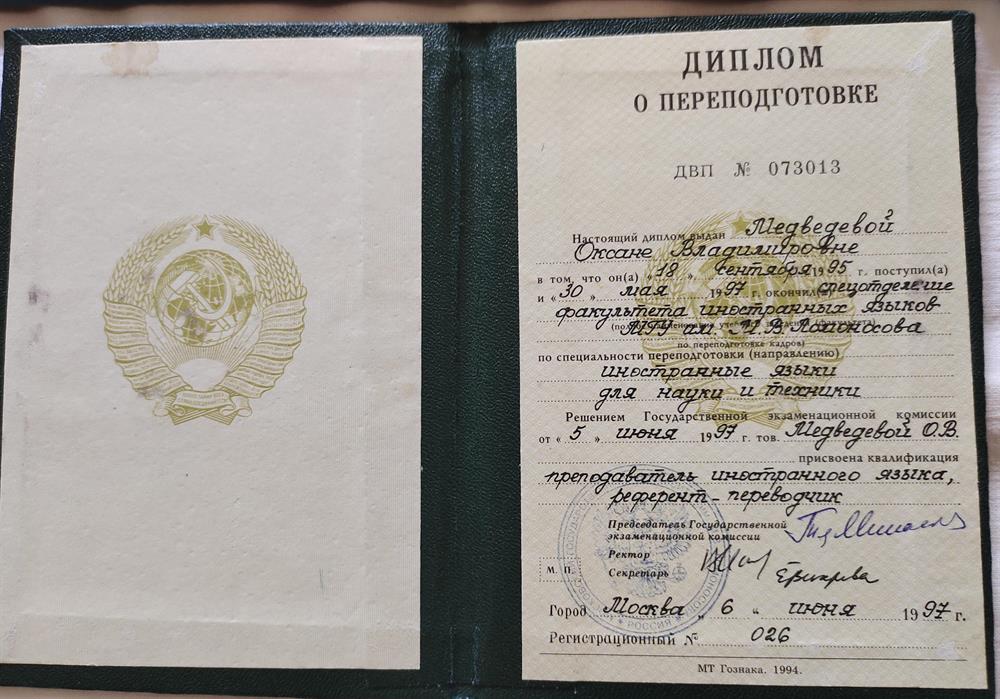 ДИПЛОМ
О ПЕРЕПОДГОТОВКЕ
ДВП № 073013
Настоящий диплом выдан Медведевой
Оксане Владимировне
в том, что он(а) «18» сентября 1995 г. поступил(а)
и «30» мая 1997 г. окончил(а) спецотделение
факультета иностранных языков
МГУ им. М.В Ломоносова
по переподготовке кадров)
по специальности переподготовки (направлению)
иностранные языки
для науки и техники
Решением Государственной экзаменационной комиссии
от «5» июня 1997 г. тов. Медведевой О.В.
присвоена квалификация
преподаватель иностранного языка,
референт-переводчик
Председатель Государственной
экзаменационной комиссии
Ректор
М. П. Секретарь
Город Москва „ 6 “ июня 1997 г.
Регистрационный № 026
РОССИЯ
МТ Гознака. 1994.